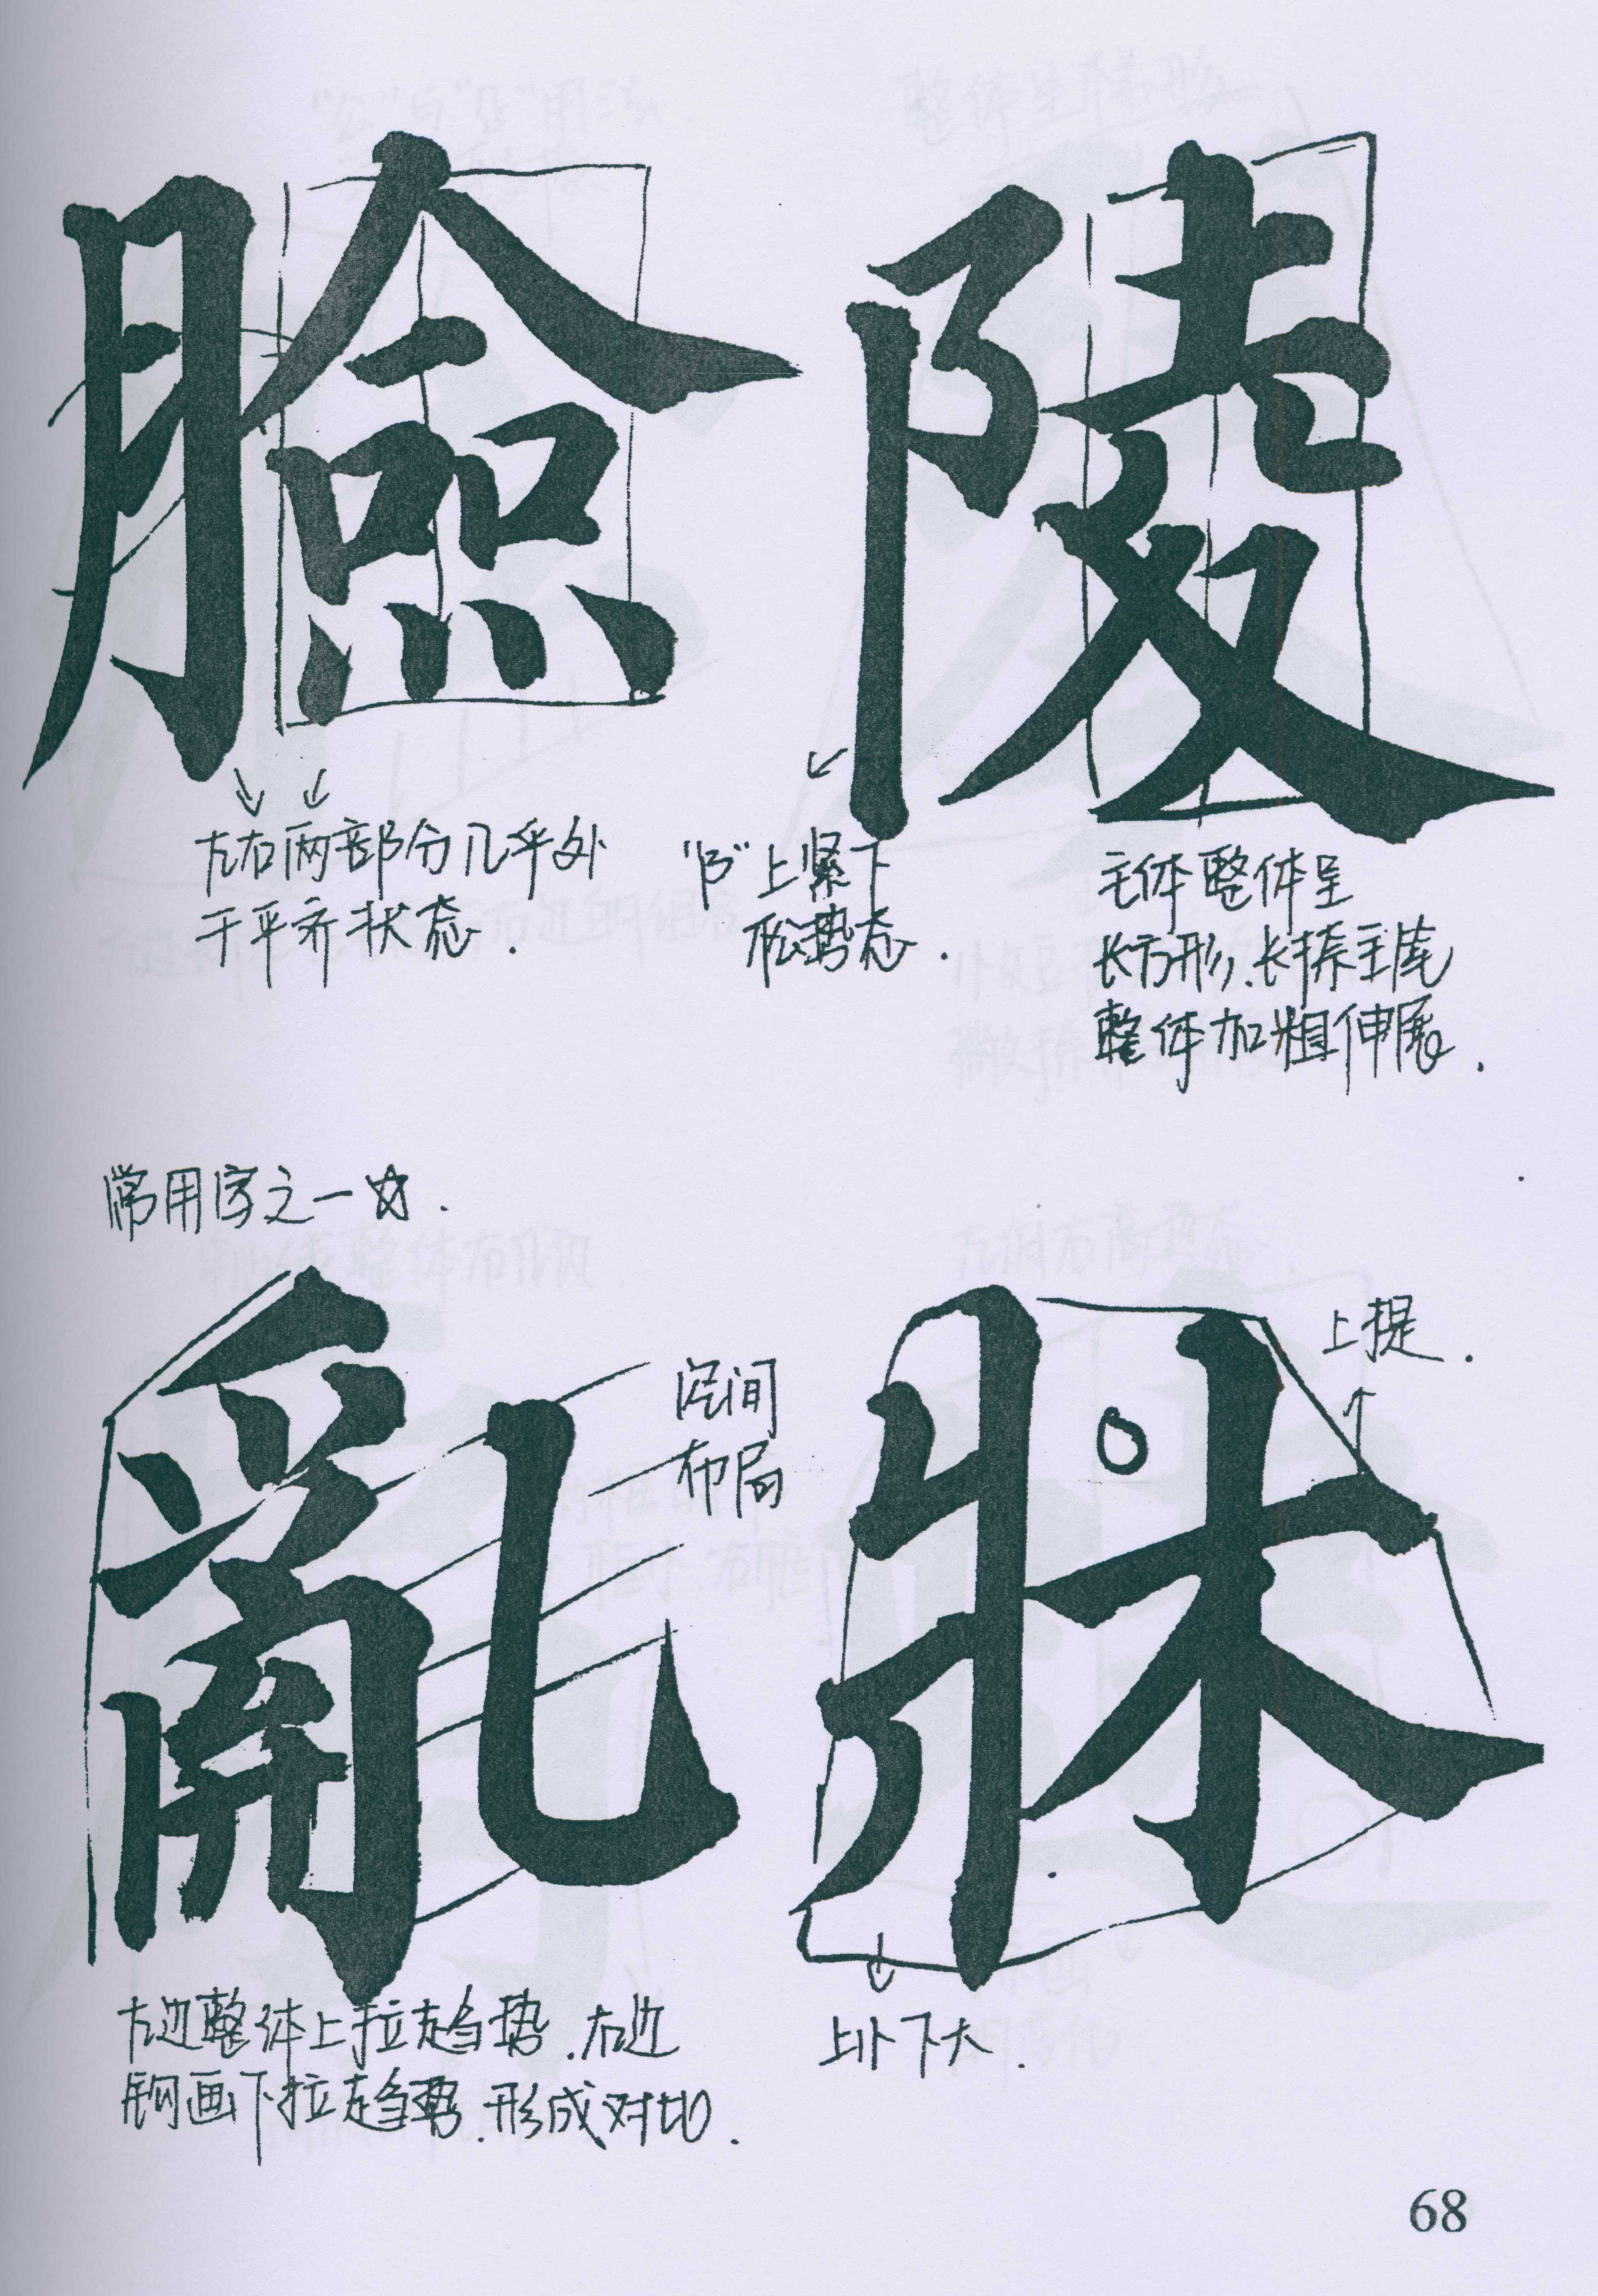 臉
陵
左右两部分几乎处
于平齐状态.
"阝"上紧下
松势态.
主体整体呈
长方形,长捺主笔
整体加粗伸展.
常用字之一☆.
亂
空间
布局
牀
上提.
左边整体上拉趋势.右边
钩画下拉趋势.形成对比.
上小下大.
68